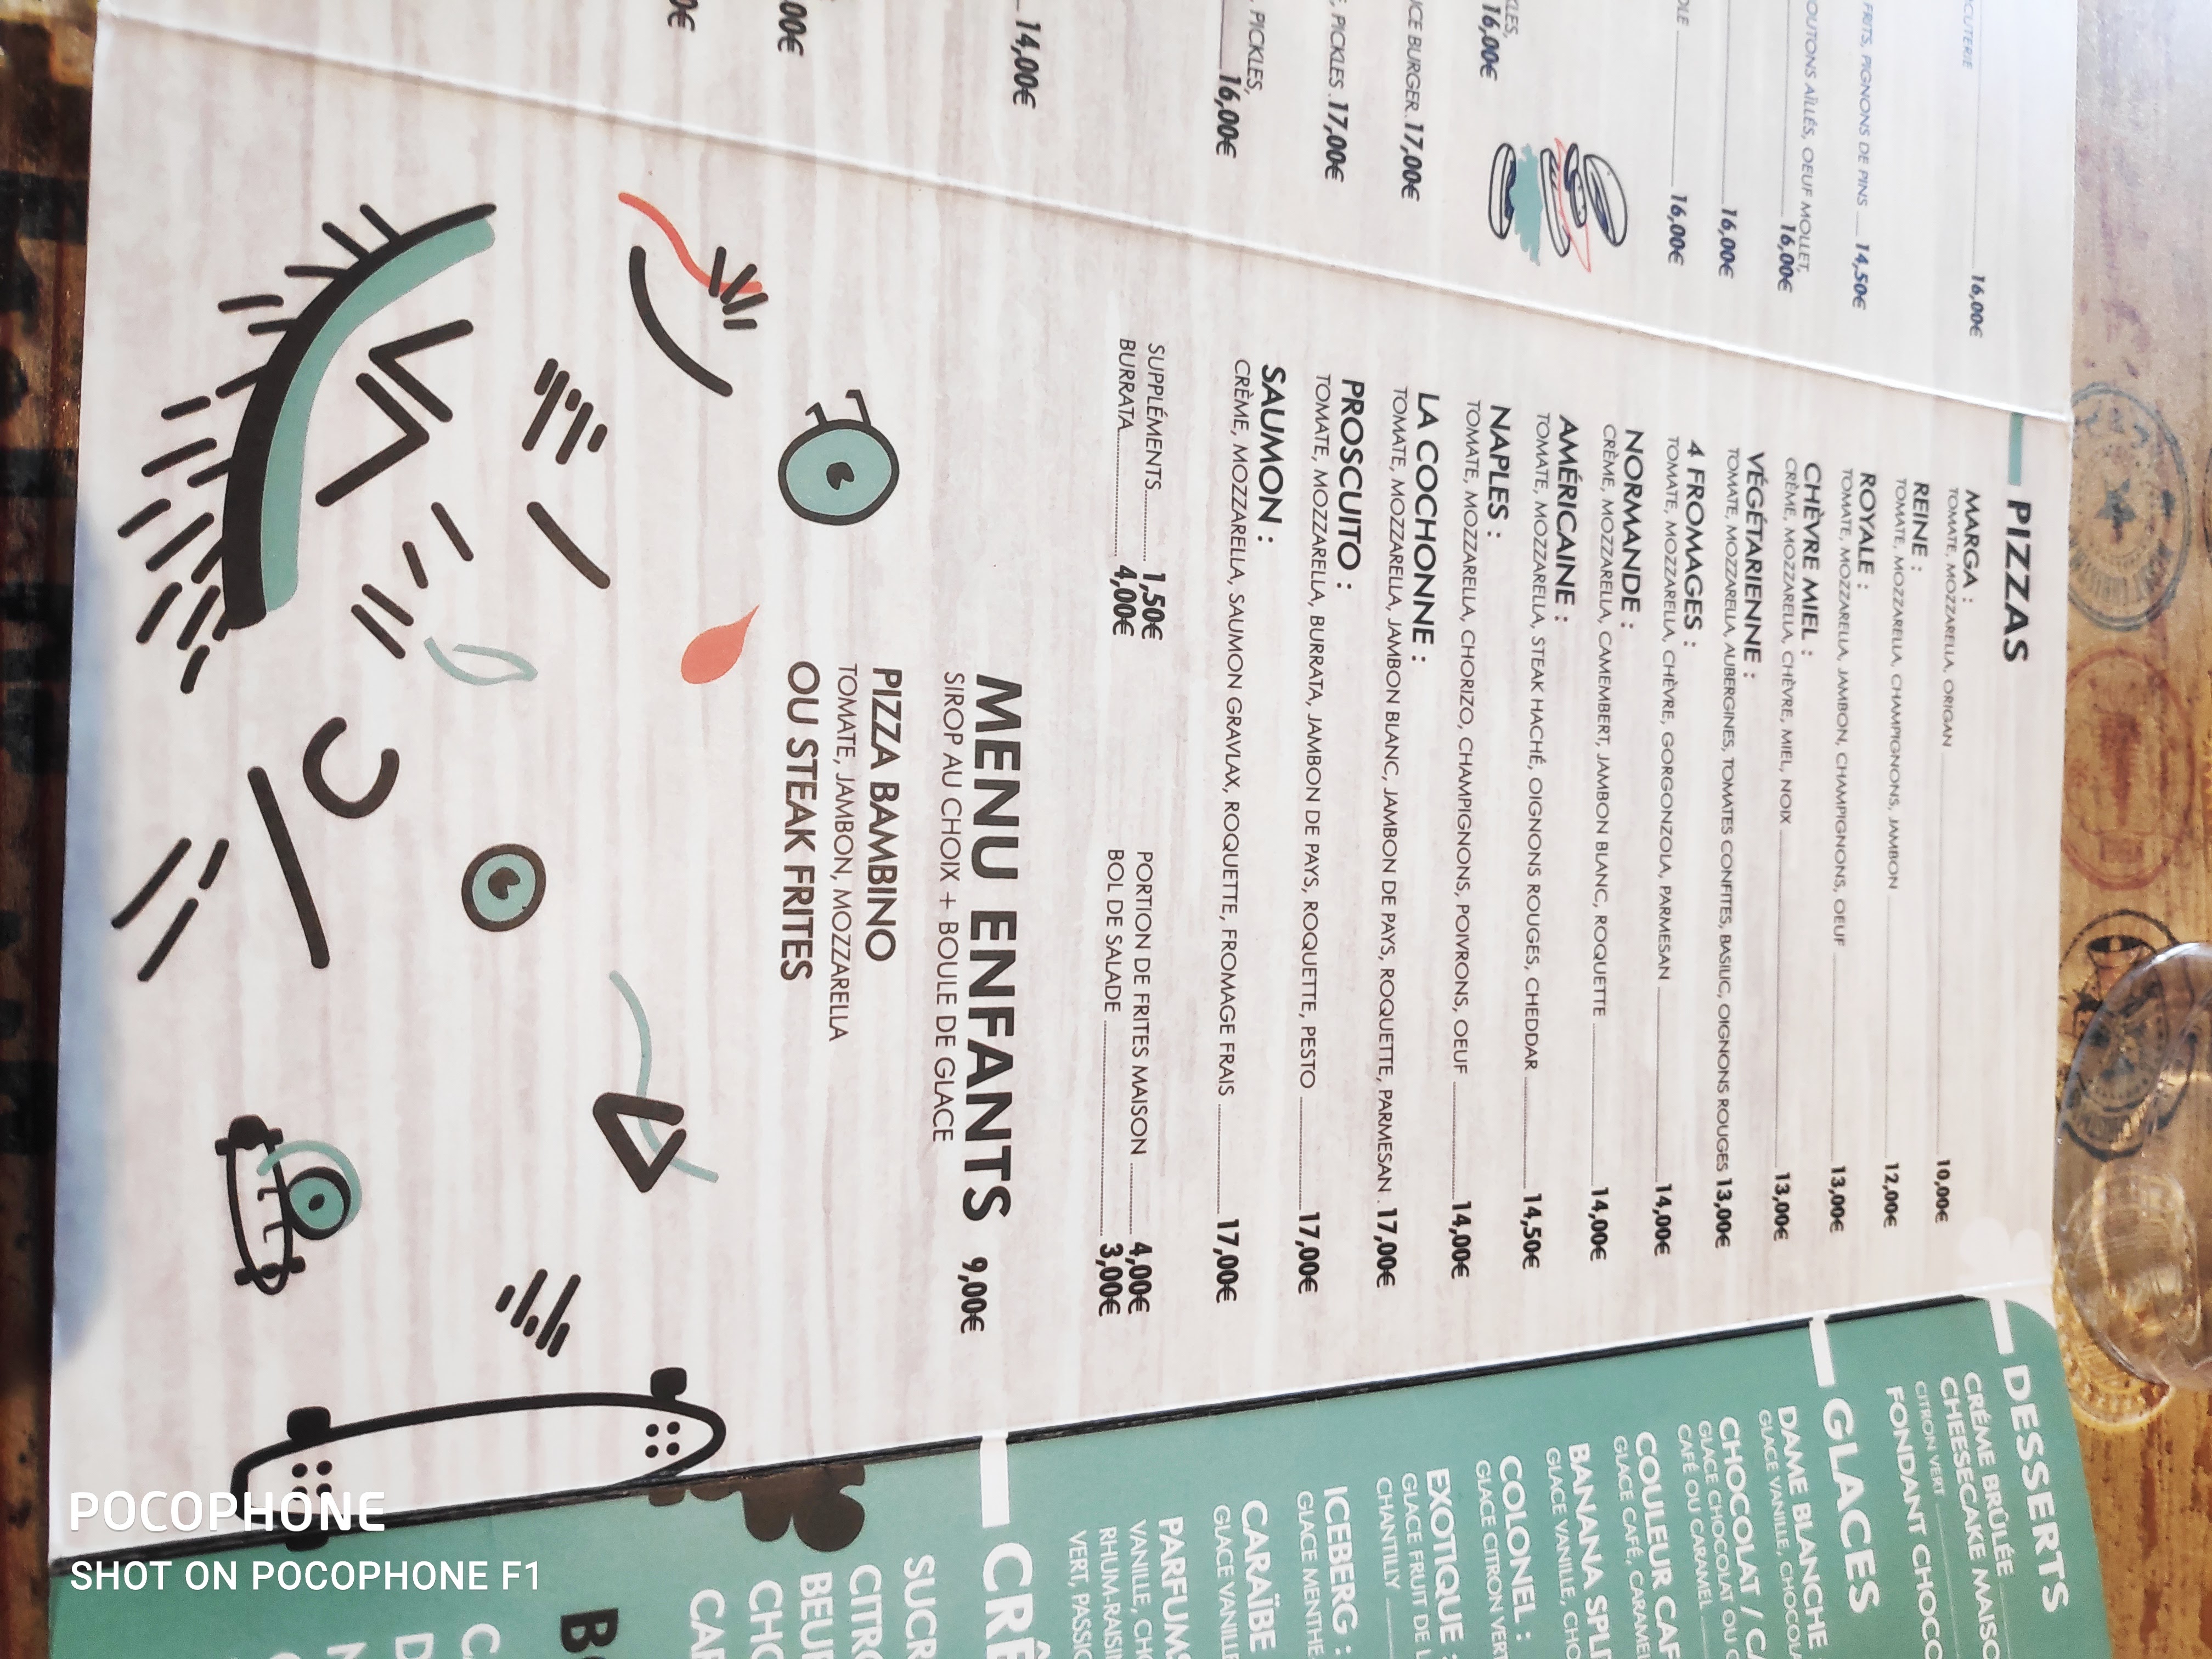 CUTERIE
16,00€
FRITS, PIGNONS DE PINS 14,50€
OUTONS AILLÉS, OEUF MOLLET,
16,00€
16,00€
16,00€
16,00€
CE BURGER 17,00€
, PICKLES 17,00€
PICKLES,
16,00€
14,00€
PIZZAS
MARGA :
TOMATE, MOZZARELLA, ORIGAN 10,00€
REINE :
TOMATE, MOZZARELLA, CHAMPIGNONS, JAMBON 12,00€
ROYALE :
TOMATE, MOZZARELLA, JAMBON, CHAMPIGNONS, OEUF 13,00€
CHÈVRE MIEL :
CRÈME, MOZZARELLA, CHÈVRE, MIEL, NOIX 13,00€
VÉGÉTARIENNE :
TOMATE, MOZZARELLA, AUBERGINES, TOMATES CONFITES, BASILIC, OIGNONS ROUGES 13,00€
4 FROMAGES :
TOMATE, MOZZARELLA, CHÈVRE, GORGONZOLA, PARMESAN 14,00€
NORMANDE :
CRÈME, MOZZARELLA, CAMEMBERT, JAMBON BLANC, ROQUETTE 14,00€
AMÉRICAINE :
TOMATE, MOZZARELLA, STEAK HACHÉ, OIGNONS ROUGES, CHEDDAR 14,50€
NAPLES :
TOMATE, MOZZARELLA, CHORIZO, CHAMPIGNONS, POIVRONS, OEUF 14,00€
LA COCHONNE :
TOMATE, MOZZARELLA, JAMBON BLANC, JAMBON DE PAYS, ROQUETTE, PARMESAN . 17,00€
PROSCUITO :
TOMATE, MOZZARELLA, BURRATA, JAMBON DE PAYS, ROQUETTE, PESTO 17,00€
SAUMON :
CRÈME, MOZZARELLA, SAUMON GRAVLAX, ROQUETTE, FROMAGE FRAIS 17,00€
SUPPLÉMENTS 1,50€
BURRATA 4,00€
PORTION DE FRITES MAISON 4,00€
BOL DE SALADE 3,00€
MENU ENFANTS 9,00€
SIROP AU CHOIX + BOULE DE GLACE
PIZZA BAMBINO
TOMATE, JAMBON, MOZZARELLA
OU STEAK FRITES
DESSERTS
CRÈME BRÛLÉE
CHEESECAKE MAISO
CITRON VERT
FONDANT CHOCO
GLACES
DAME BLANCHE
GLACE VANILLE, CHOCOLA
CHOCOLAT / CA
GLACE CHOCOLAT OU C
CAFÉ OU CARAMEL
COULEUR CAF
GLACE CAFÉ, CARAMEL
BANANA SPLIT
GLACE VANILLE, CHO
COLONEL :
GLACE CITRON VERT
EXOTIQUE :
GLACE FRUIT DE L
CHANTILLY
ICEBERG :
GLACE MENTHE
CARAÏBE
GLACE VANILLE
PARFUMS
VANILLE, CHO
RHUM-RAISIN
VERT, PASSIO
CRÊ
SUCR
CITRO
BEUR
CHO
CAR
POCOPHONE
SHOT ON POCOPHONE F1